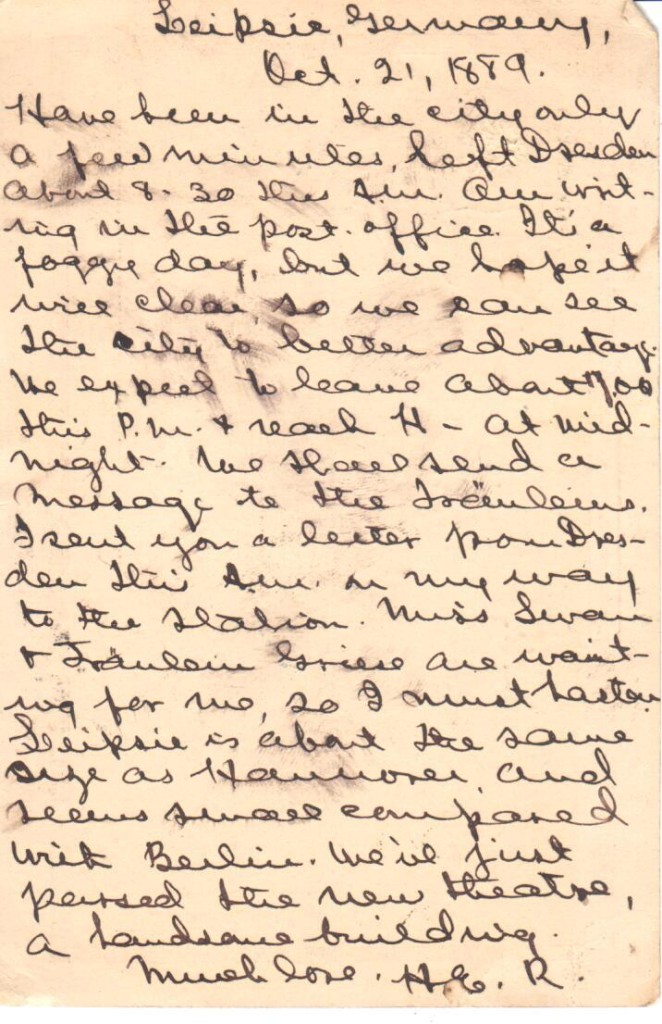 Leipsic, Germany,
Oct. 21, 1889.
Have been in the city only
a few minutes, left Dresden
about 8-30 this A.m. Am writ-
ing in the post-office. It's a
foggy day, but we hope it
will clear, so we can see
the city to better advantage.
We expect to leave about 7.00
this P.m. & reach H - at mid-
night. We shall send a
message to the Fräuleins.
I sent you a letter from Dres-
den this A.m. on my way
to the station. Miss Swan
& Fräulein Griese are wait-
ing for me, so I must hasten.
Leipsic is about the same
size as Hannover, and
seems small compared
with Berlin. We've just
passed the new theatre,
a handsome building.
Much love. H.E.R.